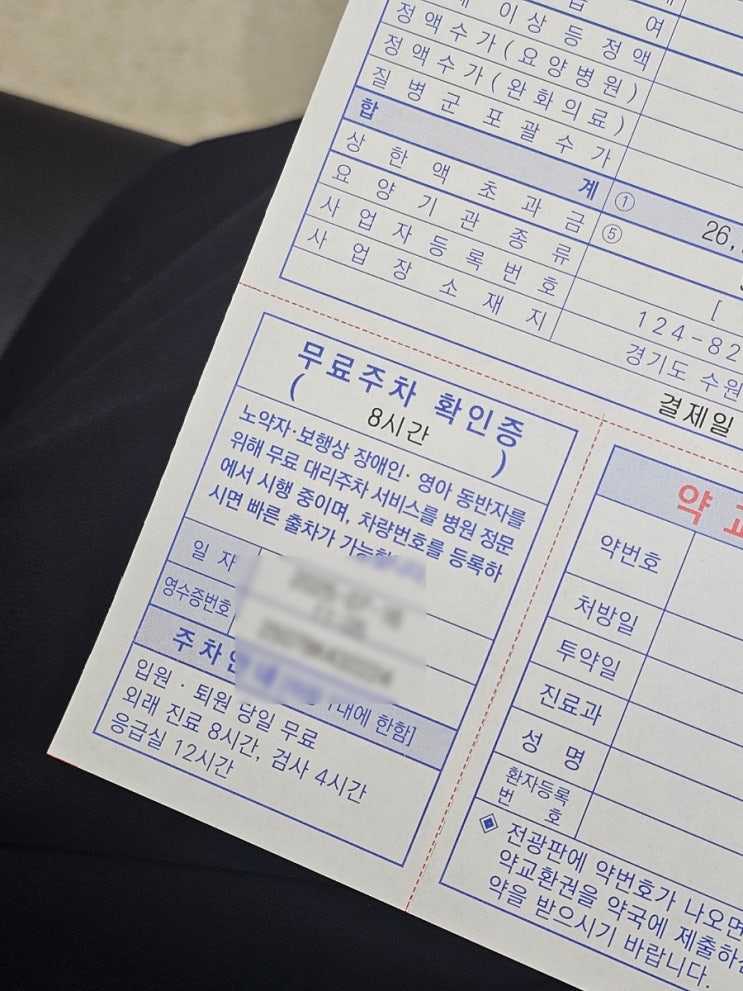 이 상 등 정 액
정액수가(요양병원)
정액수가(완화의료)
질 병 군 포 괄 수 가
합 계 ①
26,
상 한 액 초 과 금 ⑤
요 양 기 관 종 류 [
사 업 자 등 록 번 호 124-82
사 업 장 소 재 지 경기도 수원
결제일
무료주차 확인증
( 8시간 )
노약자·보행상 장애인· 영아 동반자를
위해 무료 대리주차 서비스를 병원 정문
에서 시행 중이며, 차량번호를 등록하
시면 빠른 출차가
일 자
영수증번호
주차안내 내에 한함]
입원 · 퇴원 당일 무료
외래 진료 8시간, 검사 4시간
응급실 12시간
약
약번호
처방일
투약일
진료과
성 명
환자등록
번 호
◈ 전광판에 약번호가 나오면
약교환권을 약국에 제출하
약을 받으시기 바랍니다.